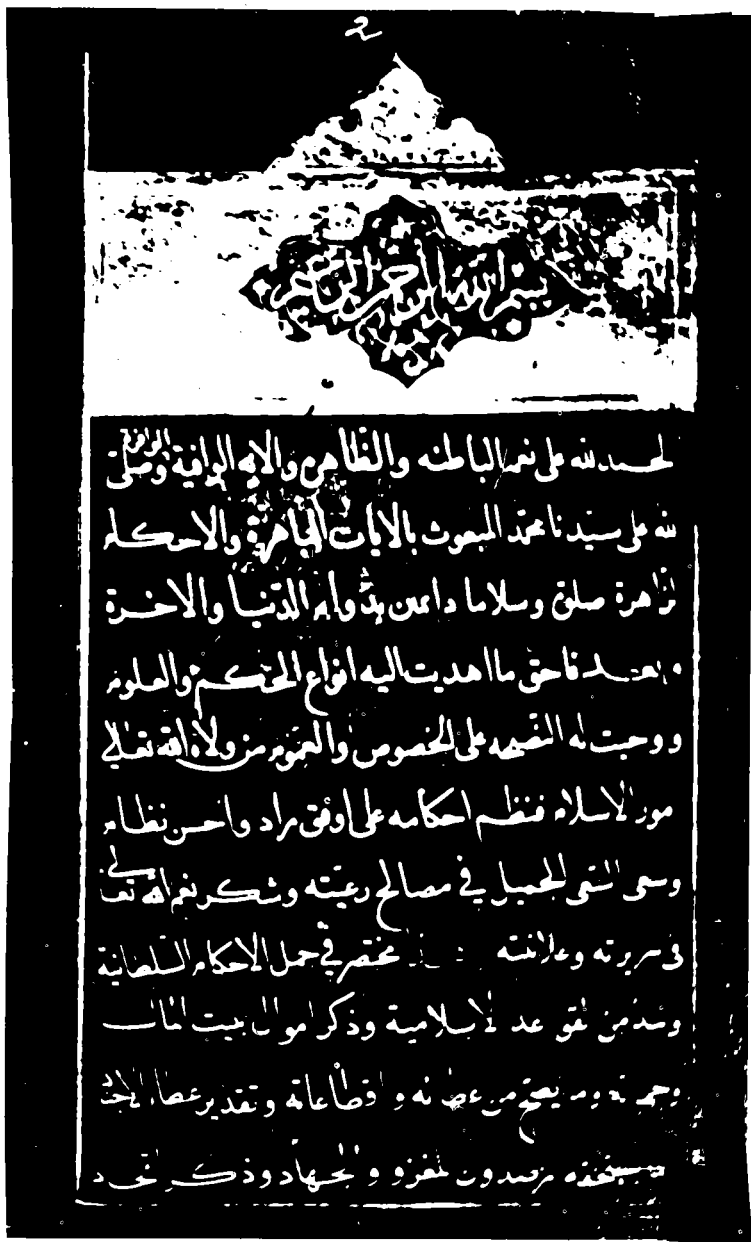 2
بسم الله الرحمن الرحيم
الحمد لله على نعمه الباطنه والظاهره والايه الوافية الوافرة وصلى
الله على سيدنا محمد المبعوث بالايات الباهرة والاحكام
الزاهرة صلوة وسلاما دائمين بدوام الدنيا والاخرة
وبعد فاحق ما اهديت اليه انواع الحكم والعلوم
ووجبت له النصيحه على الخصوص والعموم من ولاه الله تعالى
امور الاسلام فنظم احكامه على اوفق مراد واحسن نظام
وسعى السعى الجميل في مصالح رعيته وشكر نعم الله تعالى
في سريرته وعلانيته مختصر في جمل الاحكام السلطانية
ونبذ من القواعد الاسلامية وذكر اموال بيت المال
وجهاته وما يصح من عطائه واقطاعاته وتقدير عطاء الاجناد
يرصدون للغزو والجهاد وذكر